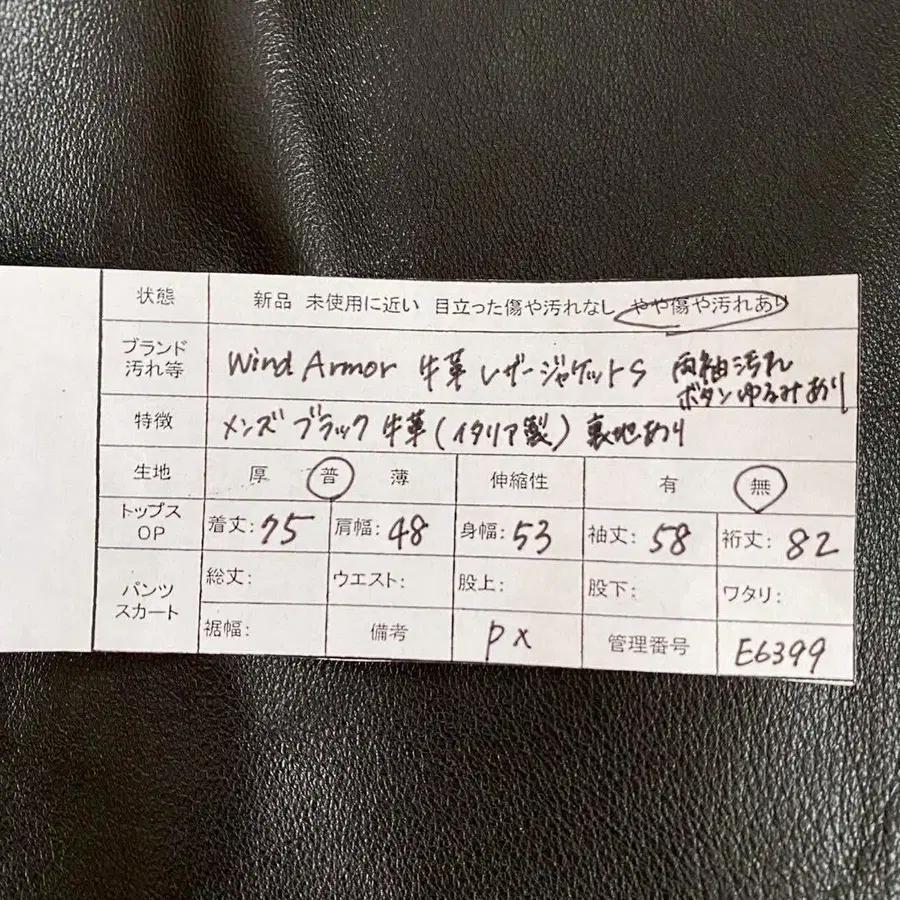 状態 新品 未使用に近い 目立った傷や汚れなし やや傷や汚れあり
ブランド 汚れ等 Wind Armor 牛革 レザージャケットS 両袖汚れ
ボタンゆるみあり
特徴 メンズ ブラック 牛革(イタリア製) 裏地あり
生地 厚 普 薄 伸縮性 有 無
トップス OP 着丈:75 肩幅:48 身幅:53 袖丈:58 裄丈:82
パンツ スカート 総丈: ウエスト: 股上: 股下: ワタリ:
裾幅: 備考 PX 管理番号 E6399